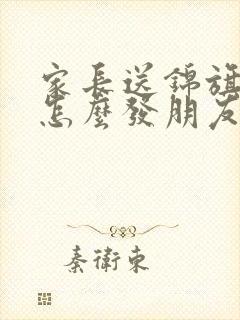 家長送錦旗
怎麼發朋友
秦衛東